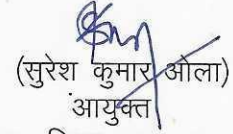 (सुरेश कुमार ओला)
आयुक्त